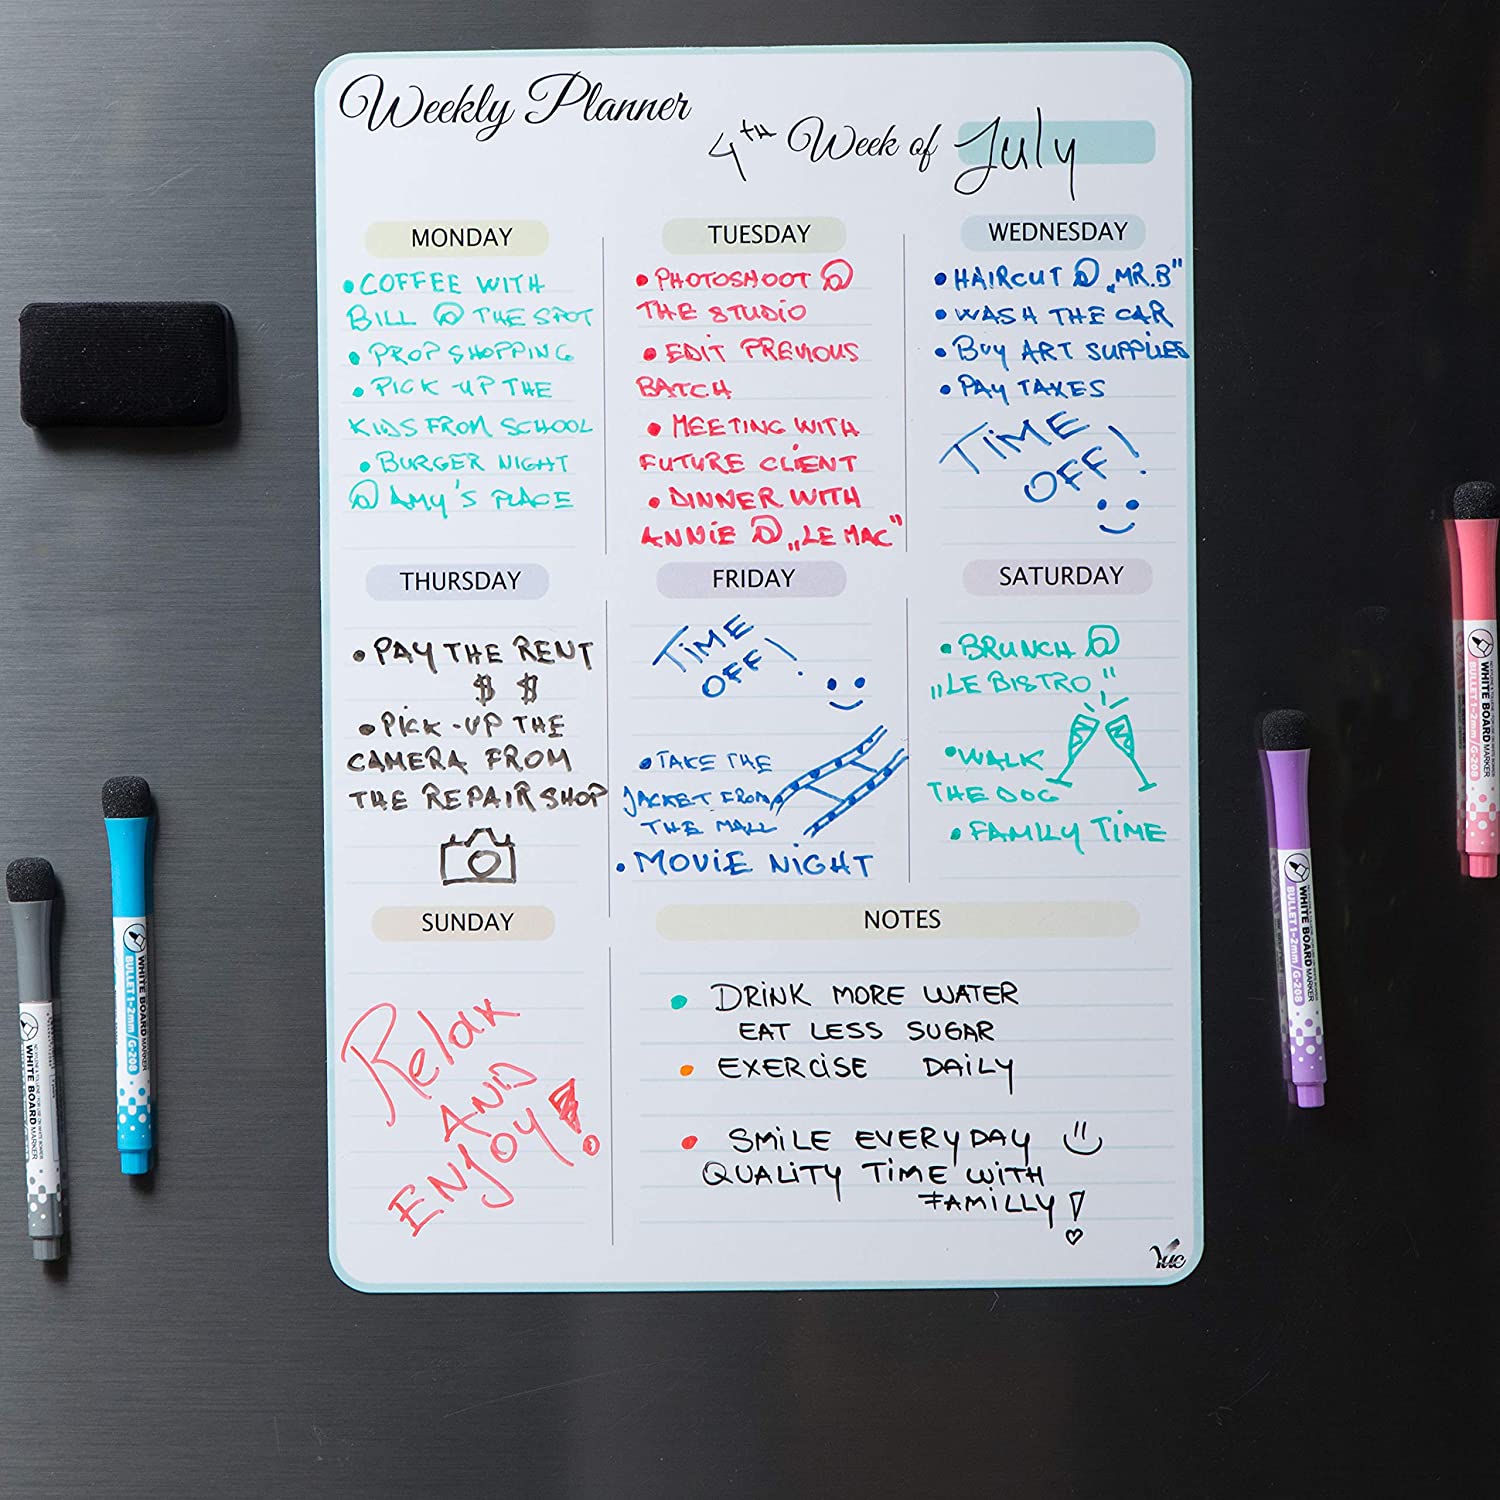 Weekly Planner
4TH Week of July
MONDAY
• COFFEE WITH
BILL @ THE SPOT
• PROP SHOPPING
• PICK-UP THE
KIDS FROM SCHOOL
• BURGER NIGHT
@ AMY'S PLACE
TUESDAY
• PHOTOSHOOT @
THE STUDIO
• EDIT PREVIOUS
BATCH
• MEETING WITH
FUTURE CLIENT
• DINNER WITH
ANNIE @ „LE MAC"
WEDNESDAY
• HAIRCUT @ „MR.B"
• WASH THE CAR
• BUY ART SUPPLIES
• PAY TAXES
TIME
OFF!
THURSDAY
• PAY THE RENT
$ $
• PICK-UP THE
CAMERA FROM
THE REPAIR SHOP
FRIDAY
TIME
OFF!
• TAKE THE
JACKET FROM
THE MALL
• MOVIE NIGHT
SATURDAY
• BRUNCH @
„LE BISTRO"
• WALK
THE DOG
• FAMILY TIME
SUNDAY
Relax
AND
ENJOY!
NOTES
• DRINK MORE WATER
EAT LESS SUGAR
• EXERCISE DAILY
• SMILE EVERY DAY
QUALITY TIME WITH
FAMILLY!
Yuc
WHITE BOARD MARKER
BULLET 1-2mm/G-208
WHITE BOARD MARKER
WHITE BOARD MARKER
BULLET 1-2mm/G-208
WHITE BOARD MARKER
BULLET 1-2mm/G-208